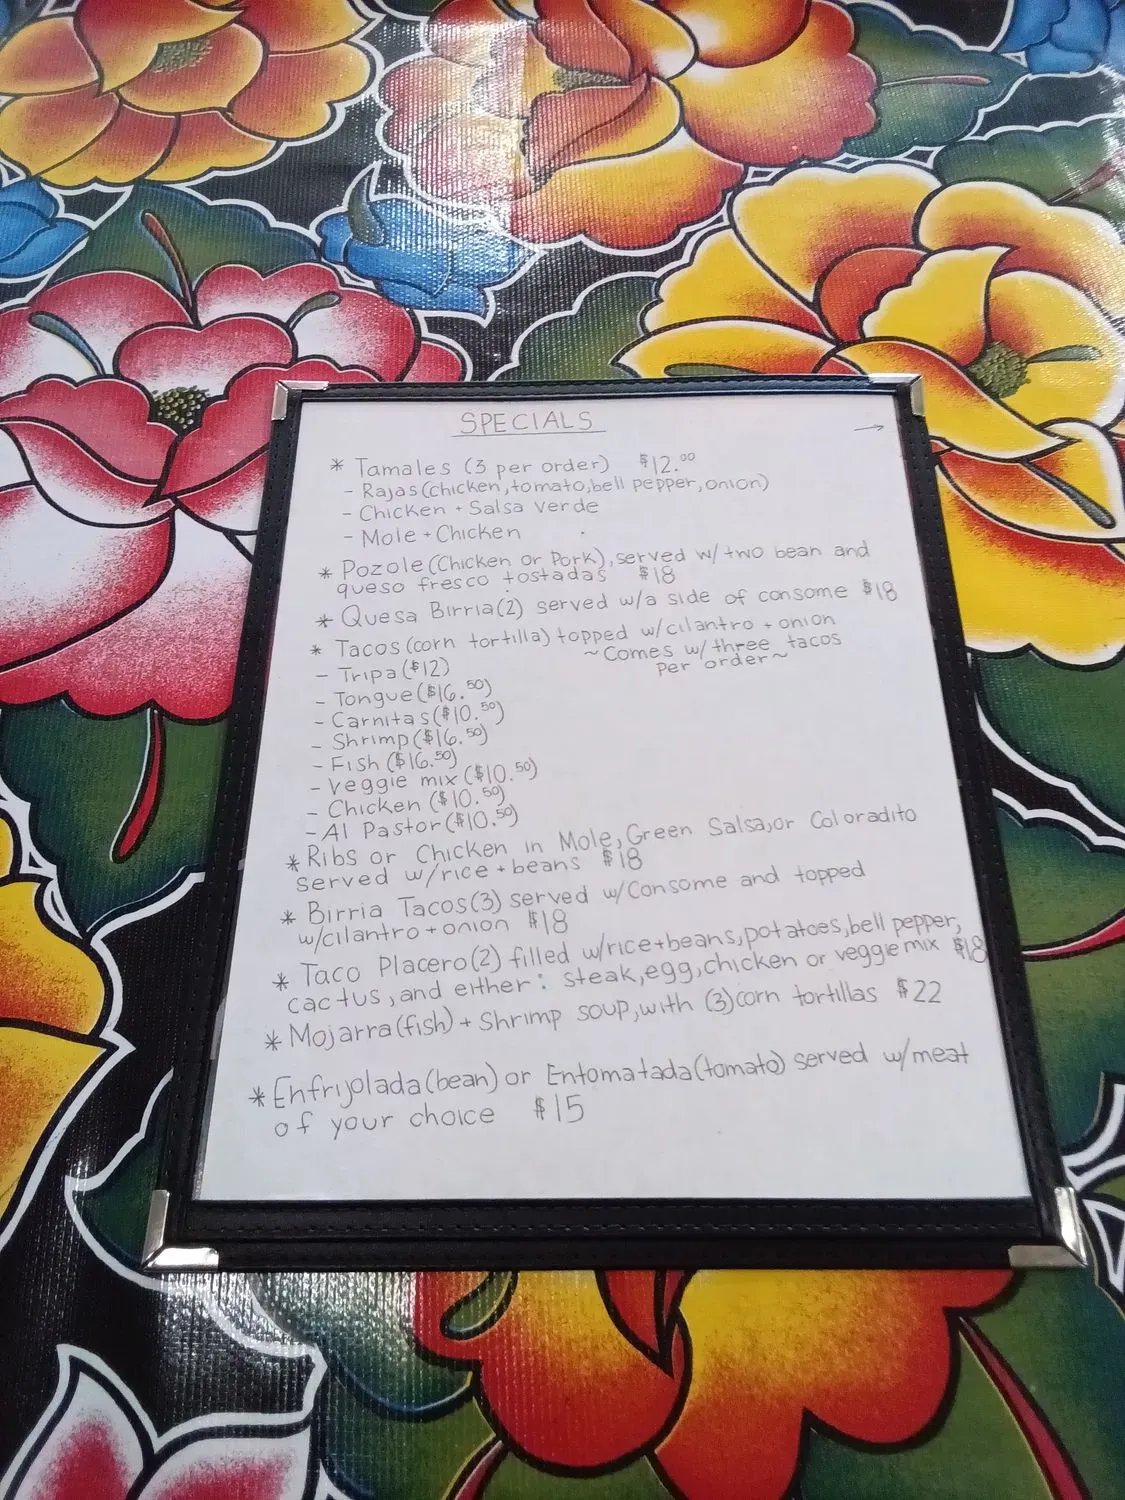 SPECIALS
→
* Tamales (3 per order) $12.00
- Rajas (chicken, tomato, bell pepper, onion)
- Chicken + Salsa verde
- Mole + Chicken
* Pozole (Chicken or Pork), served w/ two bean and
queso fresco tostadas $18
* Quesa Birria (2) served w/a side of consome $18
* Tacos (corn tortilla) topped w/cilantro + onion
~Comes w/ three tacos
Per order~
- Tripa ($12)
- Tongue ($16.50)
- Carnitas ($10.50)
- Shrimp ($16.50)
- Fish ($16.50)
- Veggie mix ($10.50)
- Chicken ($10.50)
- Al Pastor ($10.50)
* Ribs or Chicken in Mole, Green Salsa, or Coloradito
served w/rice + beans $18
* Birria Tacos (3) served w/Consome and topped
w/cilantro + onion $18
* Taco Placero (2) filled w/rice + beans, potatoes, bell pepper,
cactus, and either: steak, egg, chicken or veggie mix $18
* Mojarra (fish) + Shrimp soup, with (3) corn tortillas $22
* Enfrijolada (bean) or Entomatada (tomato) served w/meat
of your choice $15